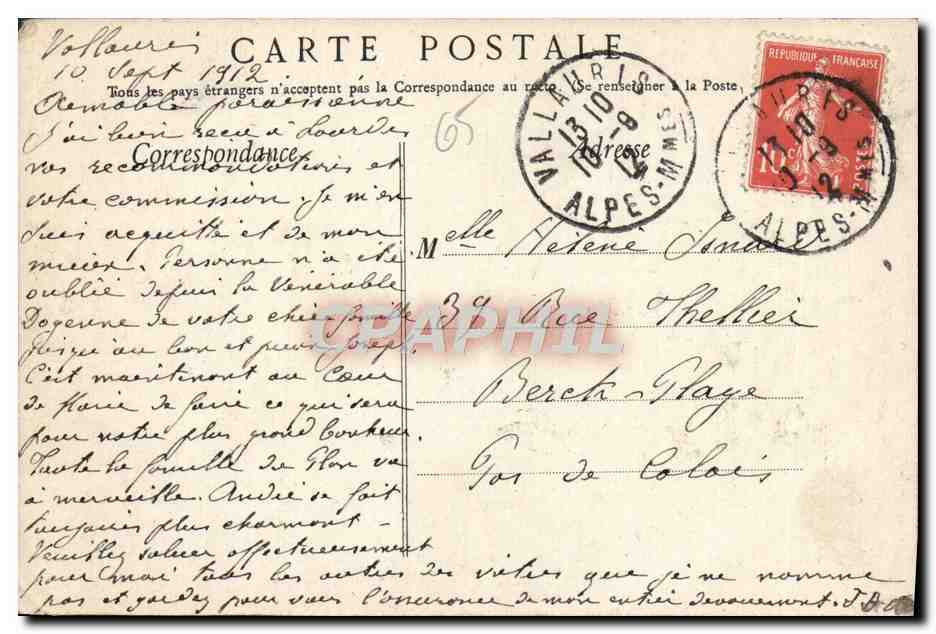 Vallauris
10 Sept 1912
CARTE POSTALE
Tous les pays étrangers n'acceptent pas la Correspondance au recto. (Se renseigner à la Poste
Correspondance
Adresse
65
VALLAURIS
13 10
10 -9
12
ALPES-MMES
REPUBLIQUE FRANÇAISE
10c
AURIS
13 10
-9
12
ALPES-MMES
Aimable paroissienne
J'ai bien reçu à Lourdes
vos recommandations et
votre commission. Je m'en
suis acquitté et de mon
mieux. Personne n'a été
oublié depuis la Vénérable
Doyenne de votre chère famille
jusqu'au bon et
C'est maintenant au Cœur
de Marie de faire ce qui sera
pour votre plus grand bonheur.
Toute la famille de va
à merveille. André se fait
toujours plus charmant -
Veuillez saluer affectueusement
pour moi tous les autres des vôtres que je ne nomme
pas et gardez pour vous l'assurance de mon entier dévouement.
Melle Hélène Isnard
37 Rue Thellier
Berck-Plage
Pas de Calais
CPAPHIL